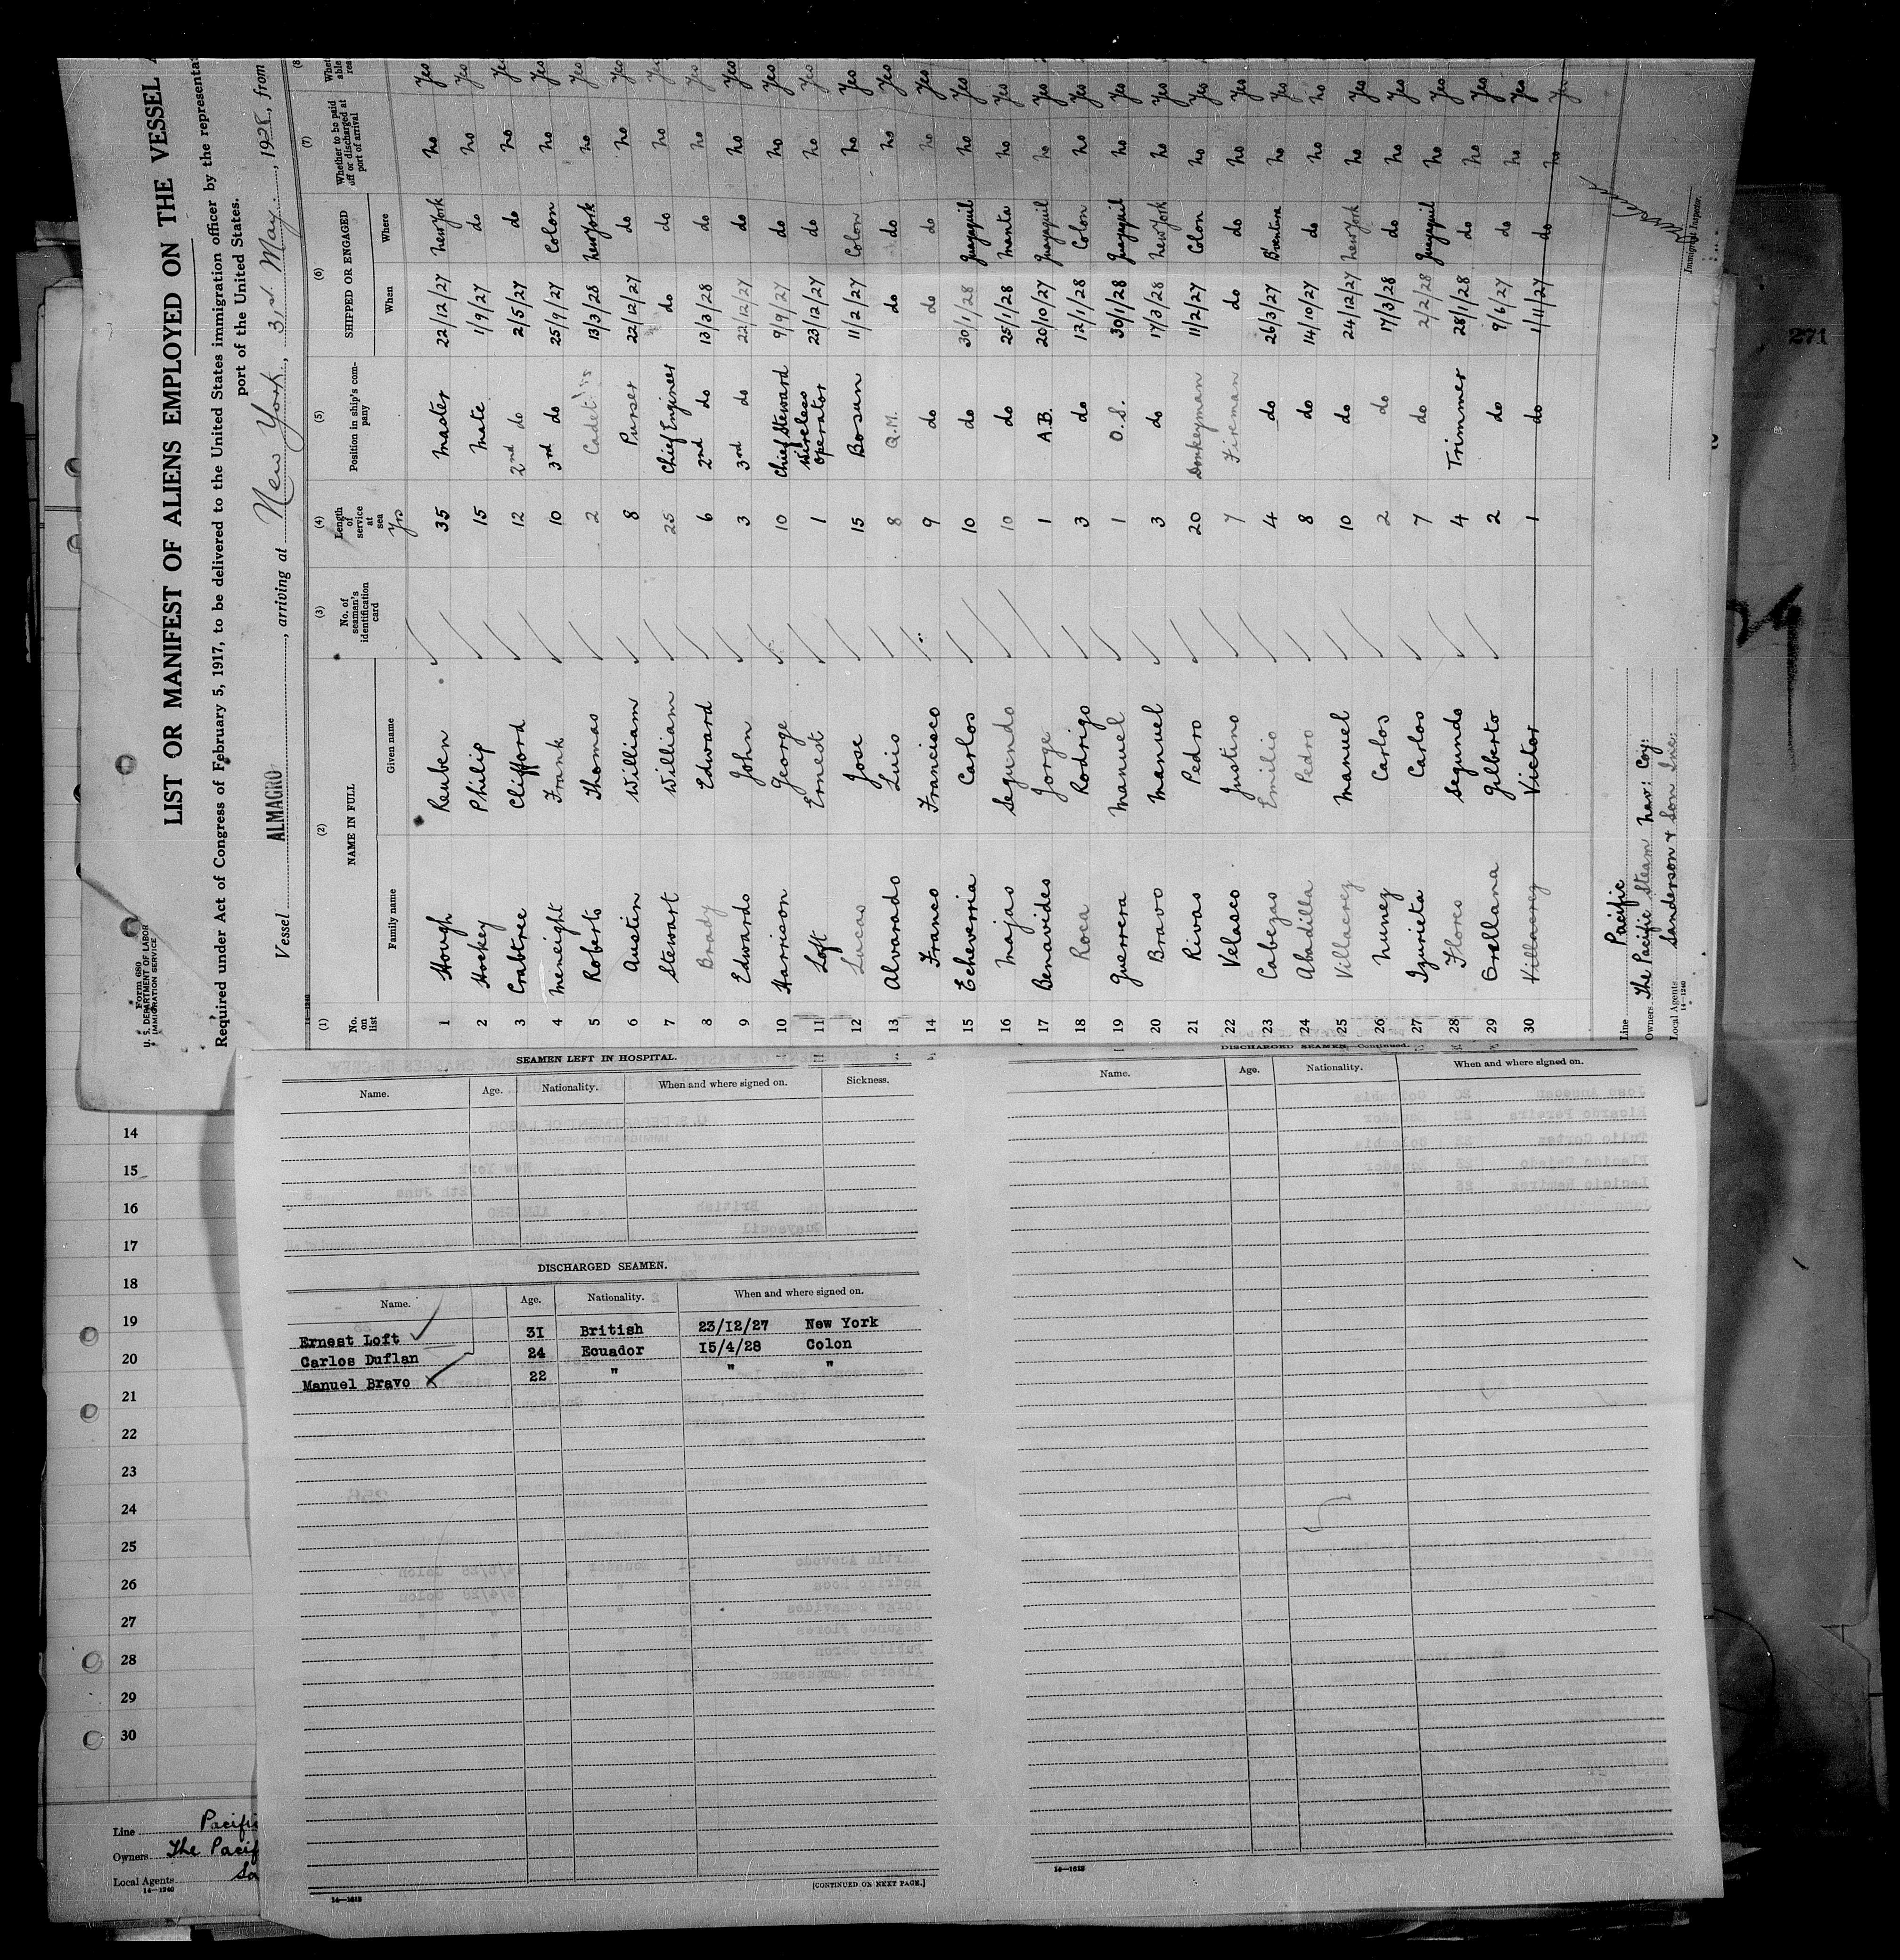 Form 680
U. S. DEPARTMENT OF LABOR
IMMIGRATION SERVICE
LIST OR MANIFEST OF ALIENS EMPLOYED ON THE VESSEL
Required under Act of Congress of February 5, 1917, to be delivered to the United States immigration officer by the representa
port of the United States.
Vessel ALMAGRO, arriving at New York, 31st. May, 1928, from
14-1240
(1) (2) (3) (4) (5) (6) (7) (8
No. on list NAME IN FULL No. of seaman's identification card Length of service at sea Position in ship's company SHIPPED OR ENGAGED Whether to be paid off or discharged at port of arrival
Family name Given name Yrs When Where
1 Hough Reuben 35 Master 22/12/27 New York no Yes
2 Hockey Philip 15 Mate 1/9/27 do no Yes
3 Crabtree Clifford 12 2nd do 2/5/27 do no Yes
4 Meneight Frank 10 3rd do 25/9/27 Colon no Yes
5 Roberts Thomas 2 Cadet 13/3/28 New York no Yes
6 Austin William 8 Purser 22/12/27 do no Yes
7 Stewart William 25 Chief Engineer do do no Yes
8 Brady Edward 6 2nd do 13/3/28 do no Yes
9 Edwards John 3 3rd do 22/12/27 do no Yes
10 Harrison George 10 Chief Steward 9/9/27 do no Yes
11 Loft Ernest 1 Wireless operator 23/12/27 do no Yes
12 Lucas Jose 15 Bosun 11/2/27 Colon no Yes
13 Alvarado Luis 8 Q.M. do do no Yes
14 Franco Francisco 9 do do do no Yes
15 Echeverria Carlos 10 do 30/1/28 Guayaquil no Yes
16 Majas Segundo 10 do 25/1/28 Manta no Yes
17 Benavides Jorge 1 A.B. 20/10/27 Guayaquil no Yes
18 Roca Rodrigo 3 do 12/1/28 Colon no Yes
19 Guerrera Manuel 1 O.S. 30/1/28 Guayaquil no Yes
20 Bravo Manuel 3 do 17/3/28 New York no Yes
21 Rivas Pedro 20 Donkeyman 11/2/27 Colon no Yes
22 Velasco Justino 7 Fireman do do no Yes
23 Cabezas Emilio 4 do 26/3/27 B'ventura no Yes
24 Abadilla Pedro 8 do 14/10/27 do no no
25 Villacrez Manuel 10 do 24/12/27 New York no Yes
26 Nunez Carlos 2 do 17/3/28 do no Yes
27 Izurieta Carlos 7 do 2/2/28 Guayaquil no Yes
28 Flores Segundo 4 Trimmer 28/1/28 do no Yes
29 Orellana Gilberto 2 do 9/6/27 do no Yes
30 Villacrez Victor 1 do 1/11/27 do no Yes
Line Pacific
Owners The Pacific Steam Nav: Coy:
Local Agents Sanderson & Son Inc.
14-1240
Immigrant Inspector.
271
SEAMEN LEFT IN HOSPITAL.
Name. Age. Nationality. When and where signed on. Sickness.
DISCHARGED SEAMEN.
Name. Age. Nationality. When and where signed on.
Ernest Loft 31 British 23/12/27 New York
Carlos Duflan 24 Ecuador 15/4/28 Colon
Manuel Bravo 22 " " "
14-1612
[CONTINUED ON NEXT PAGE.]
DISCHARGED SEAMEN—Continued.
Name. Age. Nationality. When and where signed on.
14-1612
14
15
16
17
18
19
20
21
22
23
24
25
26
27
28
29
30
Line Pacific
Owners The Pacif
Local Agents Sa
14-1240